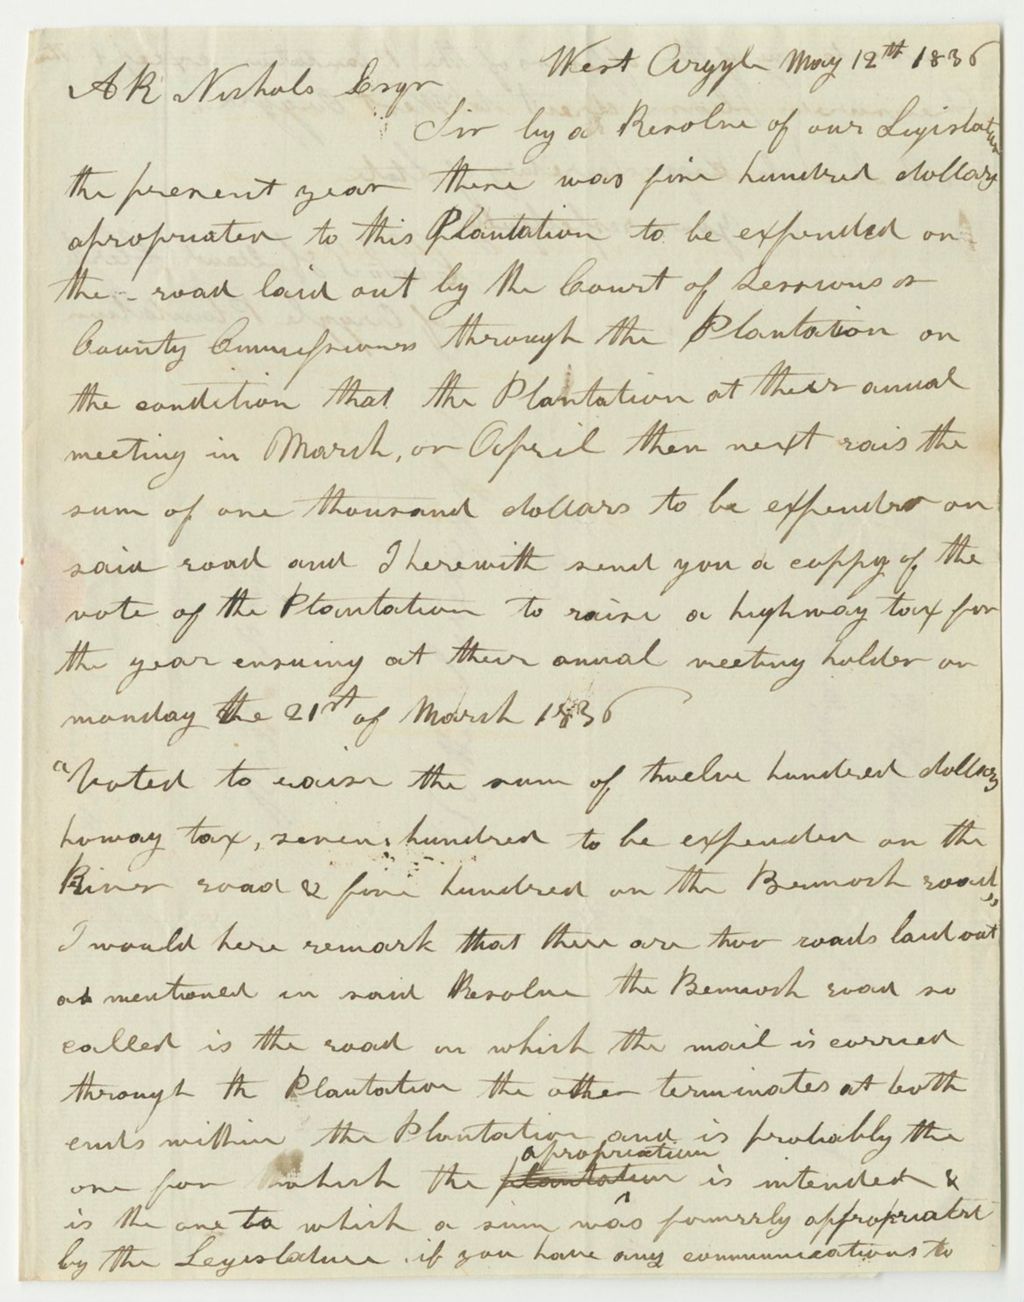 West Argyle May 12th 1836
A R Nichols Esqr
Sir by a Resolve of our Legislature
the present year there was five hundred dollars
apropriated to this Plantation to be expended on
the road laid out by the Court of Sessions or
County Commissioners through the Plantation on
the condition that the Plantation at their annual
meeting in March, or April then next rais the
sum of one thousand dollars to be expended on
said road and I herewith send you a coppy of the
vote of the Plantation to raise a highway tax for
the year ensuing at their annual meeting holden on
monday the 21st of March 1836
"Voted to raise the sum of twelve hundred dollars
howay tax, seven hundred to be expended on the
River road & five hundred on the Bennoch road"
I would here remark that there are two roads laid out
as mentioned in said Resolve the Bennoch road so
called is the road on which the mail is carried
through th Plantation the other terminates at both
ends within the Plantation and is probably the
one for which the plantation apropriation is intended &
is the one to which a sum was formerly appropriated
by the Legislature if you have any communications to